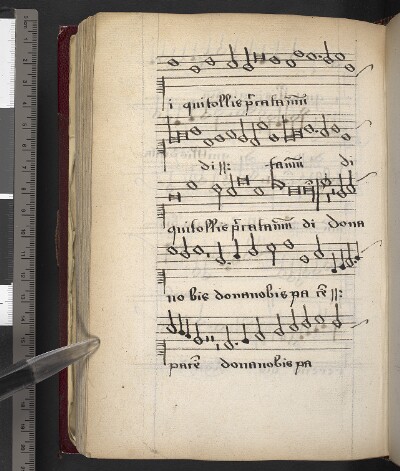 i quitollis p̄cata mūū
di ij: samū di
quitollis p̄cata mūū di dona
no bis dona nobis pa cē ij:
pacē dona nobis pa